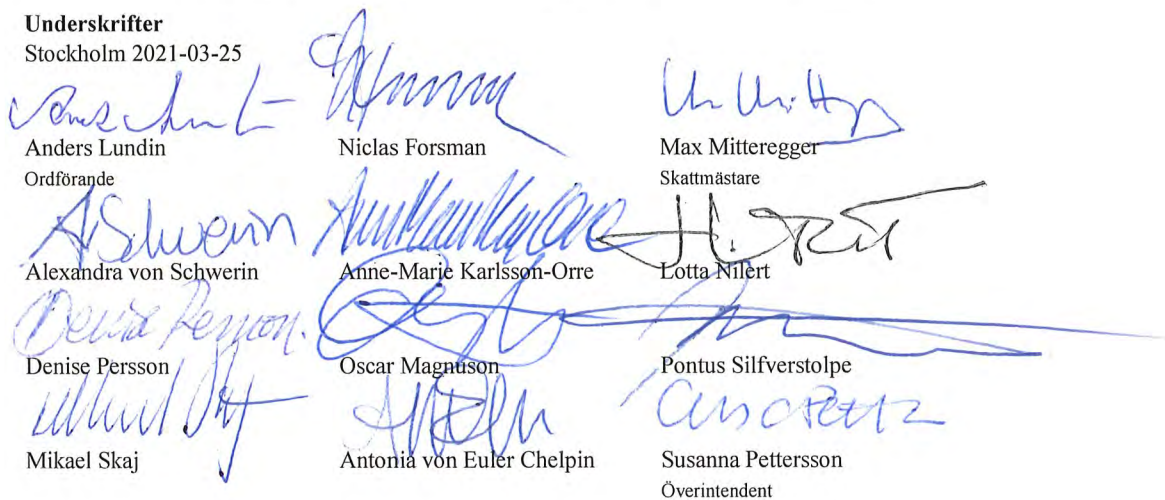 Underskrifter
Stockholm 2021-03-25
Anders Lundin
Ordförande
Niclas Forsman
Max Mitteregger
Skattmästare
Alexandra von Schwerin
Anne-Marie Karlsson-Orre
Lotta Nilert
Denise Persson
Oscar Magnuson
Pontus Silfverstolpe
Mikael Skaj
Antonia von Euler Chelpin
Susanna Pettersson
Överintendent